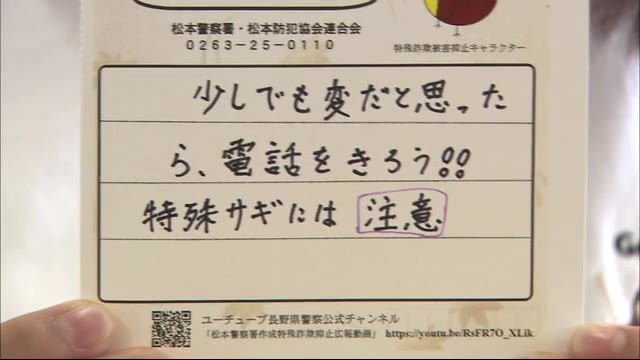 松本警察署・松本防犯協会連合会
0263-25-0110
特殊詐欺被害抑止キャラクター
少しでも変だと思った
ら、電話をきろう!!
特殊サギには 注意
ユーチューブ長野県警察公式チャンネル
「松本警察署作成特殊詐欺抑止広報動画」 https://youtu.be/RsFR7O_XLik